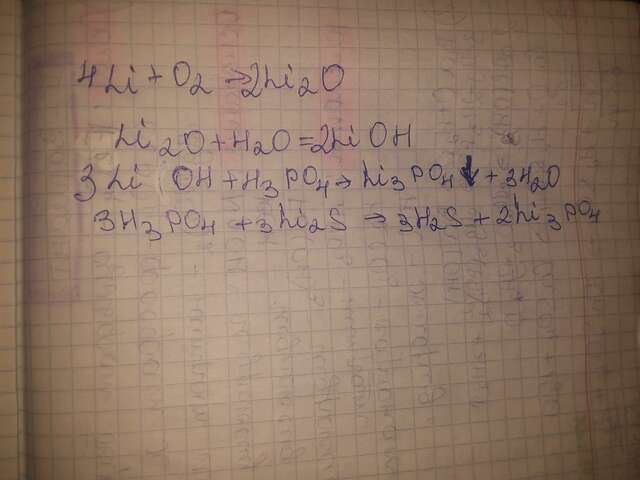 4Li + O2 → 2Li2O
Li2O + H2O = 2LiOH
3LiOH + H3PO4 → Li3PO4↓ + 3H2O
3H3PO4 + 3Li2S → 3H2S + 2Li3PO4